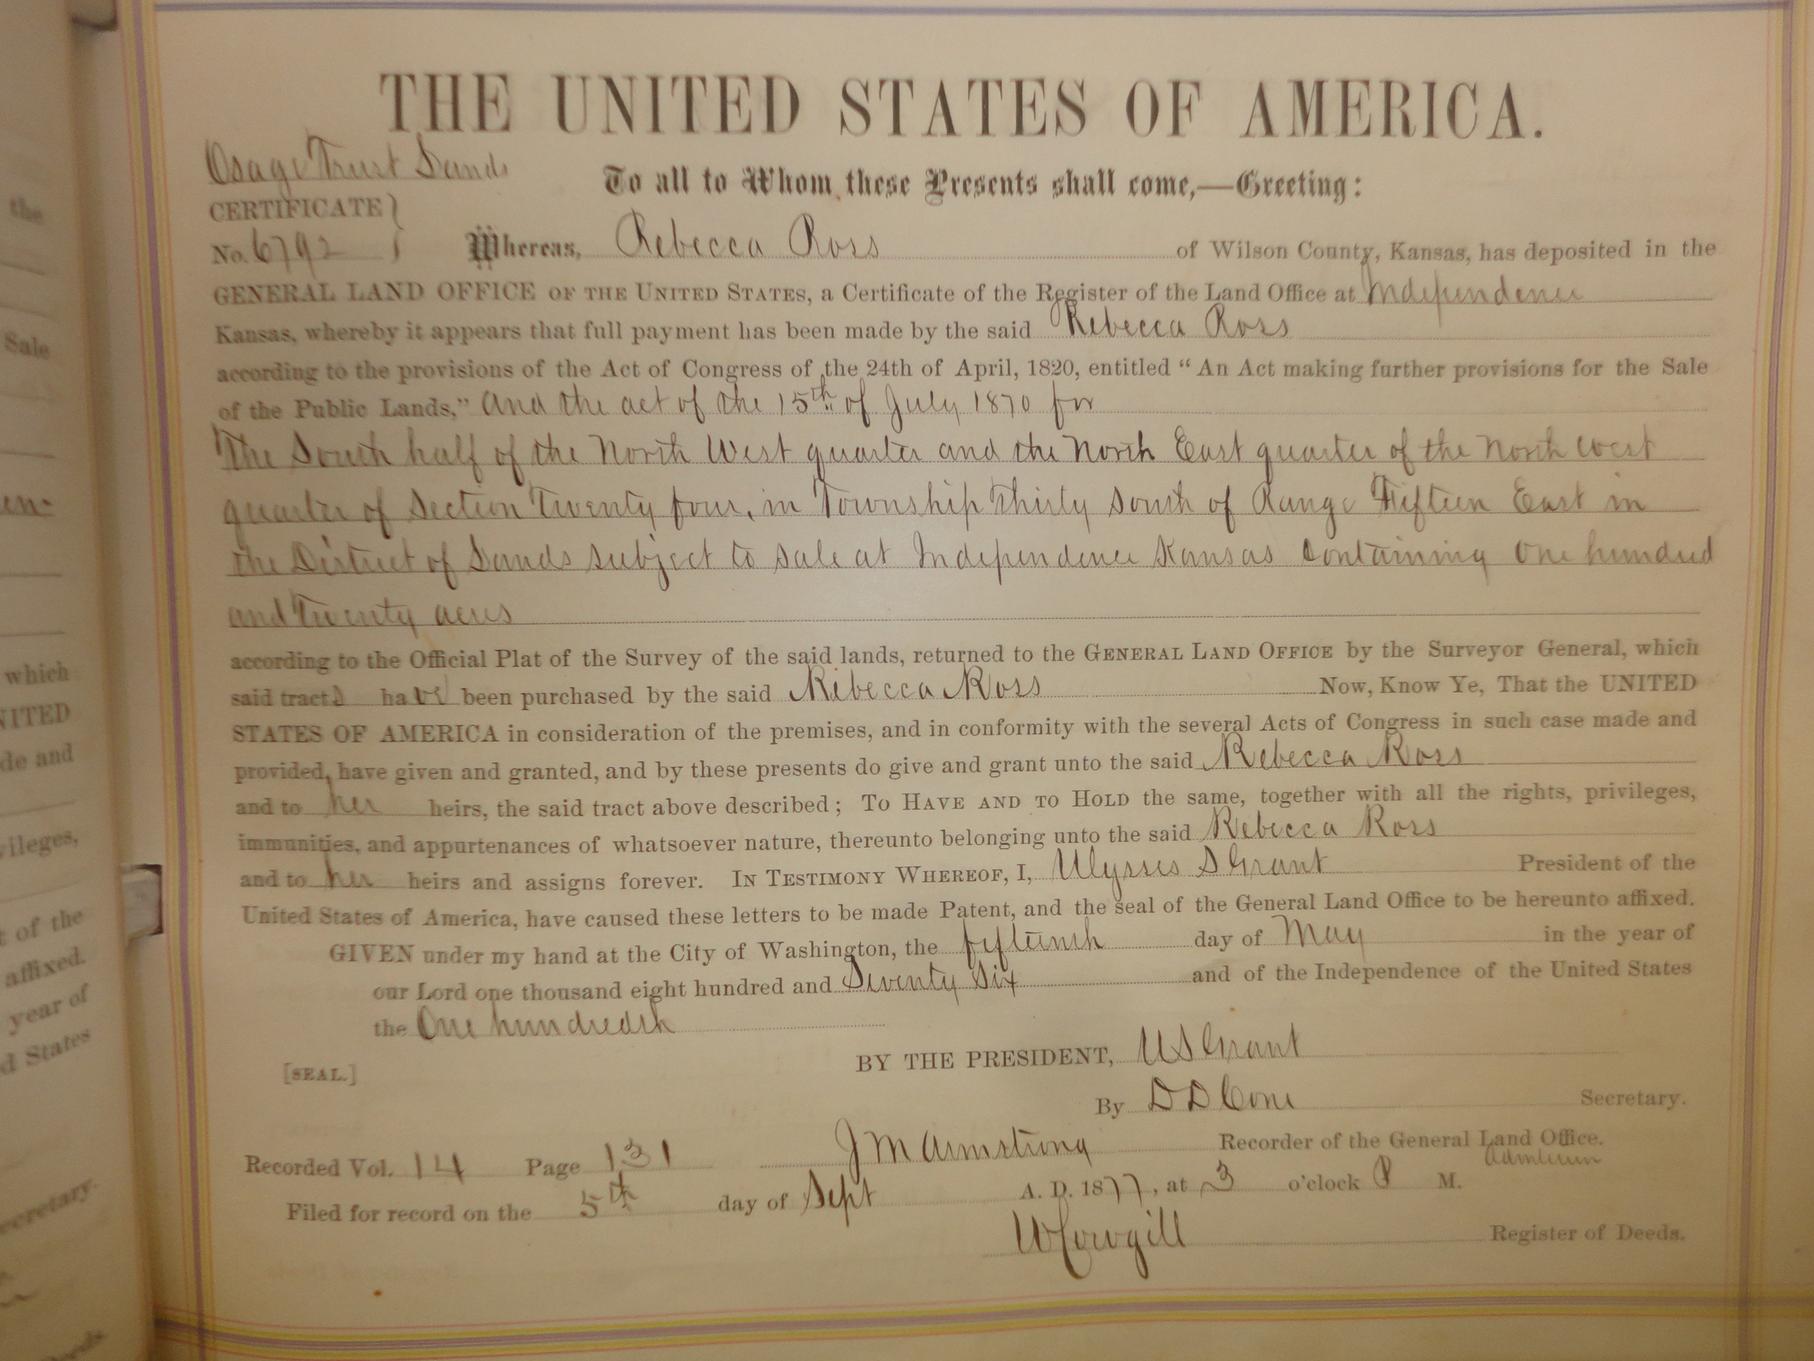 THE UNITED STATES OF AMERICA.
Osage Trust Lands
To all to Whom these Presents shall come,—Greeting:
CERTIFICATE
No. 6792
Whereas, Rebecca Ross of Wilson County, Kansas, has deposited in the
GENERAL LAND OFFICE OF THE UNITED STATES, a Certificate of the Register of the Land Office at Independence
Kansas, whereby it appears that full payment has been made by the said Rebecca Ross
according to the provisions of the Act of Congress of the 24th of April, 1820, entitled "An Act making further provisions for the Sale
of the Public Lands," and the act of the 15th of July 1870 for
The South half of the North West quarter and the North East quarter of the North West
quarter of Section Twenty four, in Township Thirty South of Range Fifteen East in
the District of Lands subject to sale at Independence Kansas containing One hundred
and Twenty acres
according to the Official Plat of the Survey of the said lands, returned to the GENERAL LAND OFFICE by the Surveyor General, which
said tracts have been purchased by the said Rebecca Ross Now, Know Ye, That the UNITED
STATES OF AMERICA in consideration of the premises, and in conformity with the several Acts of Congress in such case made and
provided, have given and granted, and by these presents do give and grant unto the said Rebecca Ross
and to her heirs, the said tract above described; TO HAVE AND TO HOLD the same, together with all the rights, privileges,
immunities, and appurtenances of whatsoever nature, thereunto belonging unto the said Rebecca Ross
and to her heirs and assigns forever. IN TESTIMONY WHEREOF, I, Ulysses S Grant President of the
United States of America, have caused these letters to be made Patent, and the seal of the General Land Office to be hereunto affixed.
GIVEN under my hand at the City of Washington, the fifteenth day of May in the year of
our Lord one thousand eight hundred and Seventy Six and of the Independence of the United States
the One hundredth
BY THE PRESIDENT, U S Grant
[SEAL.]
By D D Cone Secretary.
J M Armstrong Recorder of the General Land Office.
Recorded Vol. 14 Page 131
Filed for record on the 5th day of Sept A. D. 1877, at 3 o'clock P M.
W Cowgill Register of Deeds.
the
Sale
which
NITED
de and
vileges,
t of the
affixed.
year of
d States
ecretary.